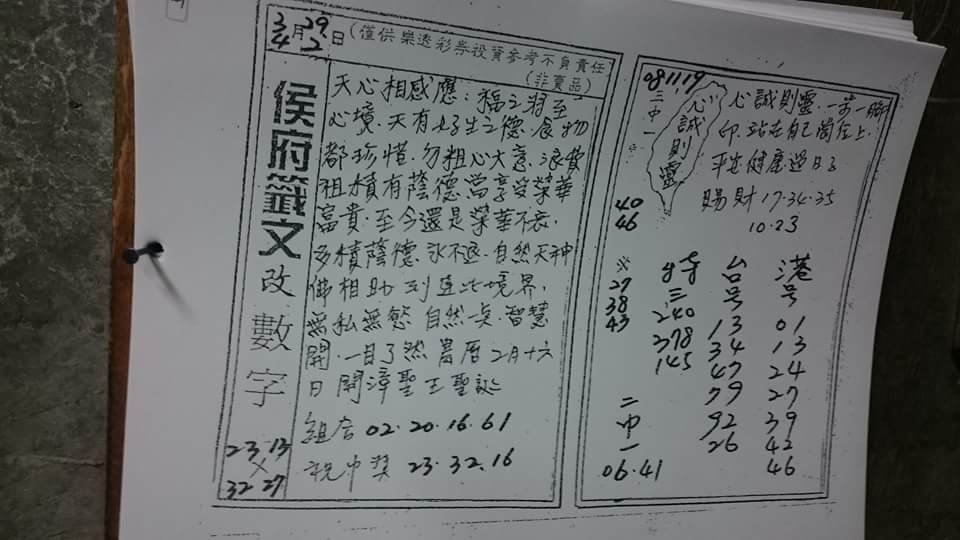 3/4月29/2日
(僅供樂透彩券投資參考不負責任
(非賣品)
侯府籤文改數字
23.13
×
32 27
天心相感應:福之將至
心境.天有好生之德.食物
都珍惜.勿粗心大意.浪費
祖積有蔭德當享受榮華
富貴.至今還是榮華不衰.
多積蔭德.永不退.自然天神
佛相助 到達此境界.
無私無慾 自然 智慧
開.一目了然 農曆 2月十六
日 開漳聖王聖誕
組合 02.20.16.61
祝中獎 23.32.16
08.11.19
三中一
40
46
心誠則靈
心誠則靈.一步一腳
印.站在自己崗位上.
平安健康過日子
賜財 17.34.35
10.23
※
27
38
43
二中一
06.41
特三
240
378
145
台號
13
34
47
79
92
26
港號
01
13
24
27
39
42
46